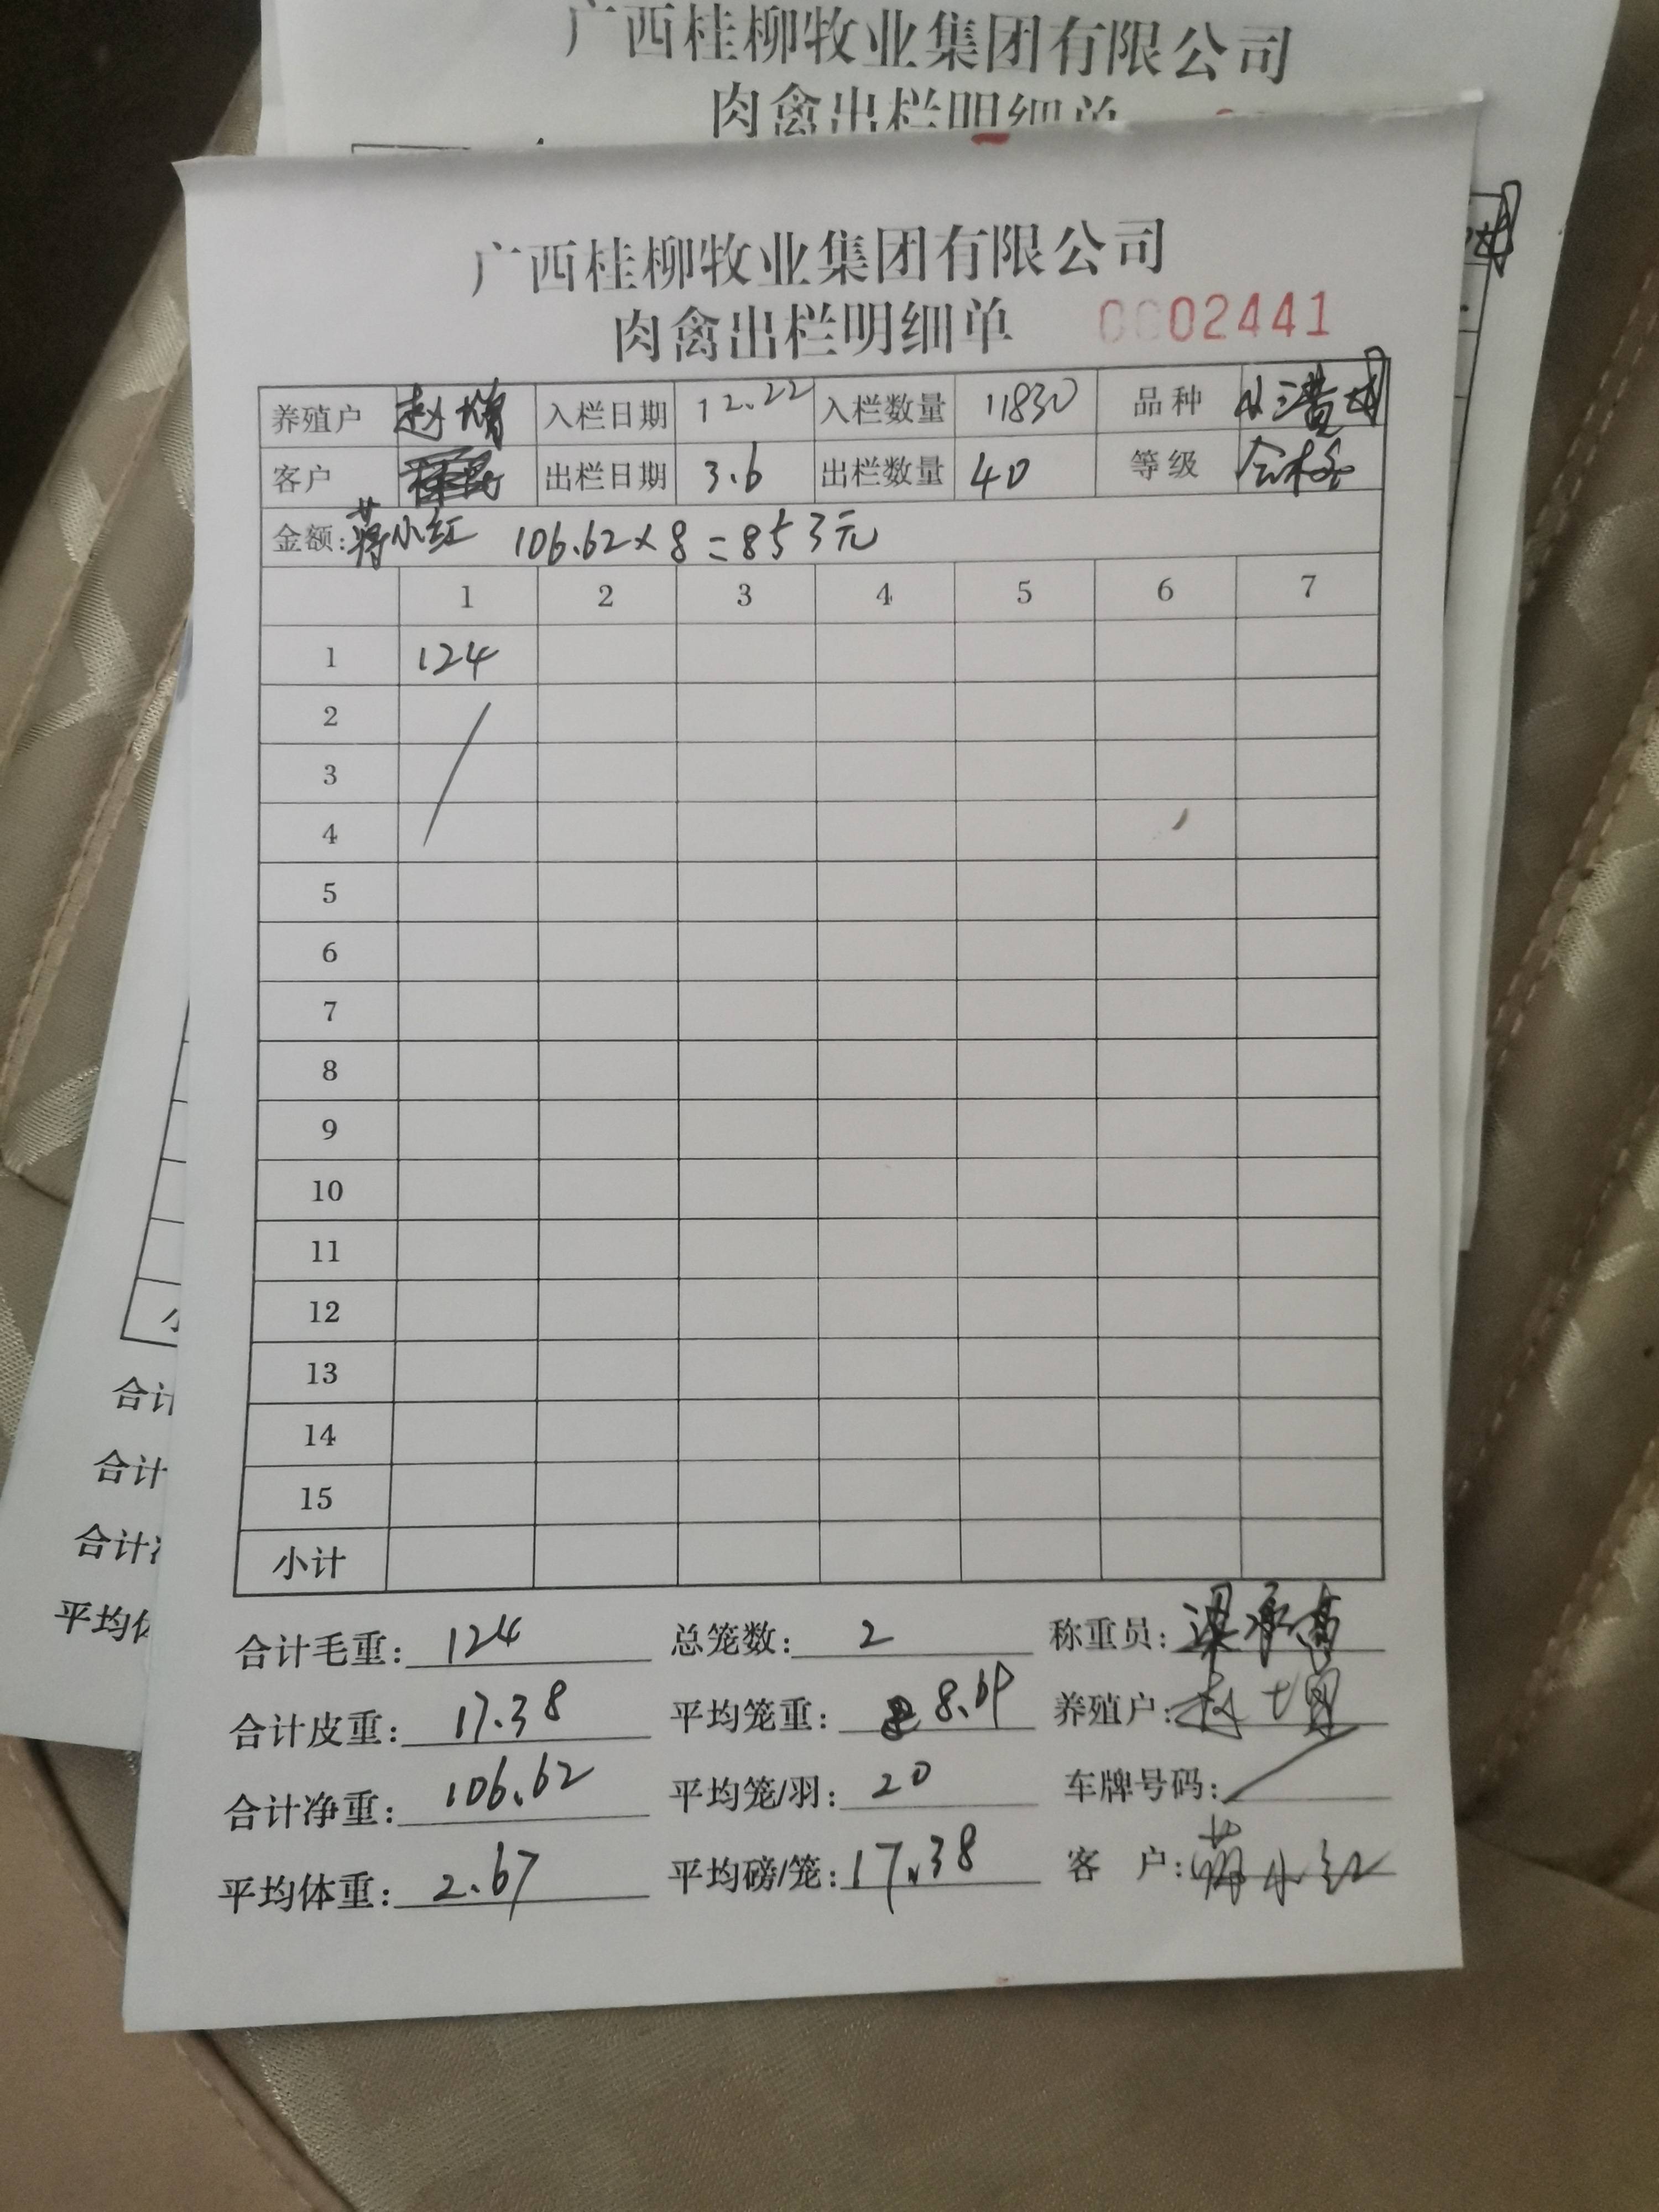 广西桂柳牧业集团有限公司
肉禽出栏明细单
广西桂柳牧业集团有限公司
肉禽出栏明细单 0002441
养殖户 赵 入栏日期 12.22 入栏数量 11830 品种
客户 出栏日期 3.6 出栏数量 40 等级 合格
金额: 蒋小红 106.62×8=853元
1 2 3 4 5 6 7
1 124
2
3
4
5
6
7
8
9
10
11
12
13
14
15
小计
合计毛重: 124 总笼数: 2 称重员: 梁承高
合计皮重: 17.38 平均笼重: 8.69 养殖户: 赵
合计净重: 106.62 平均笼/羽: 20 车牌号码:
平均体重: 2.67 平均磅/笼: 17.38 客 户: 蒋小红
小
合计
合计
合计
平均体